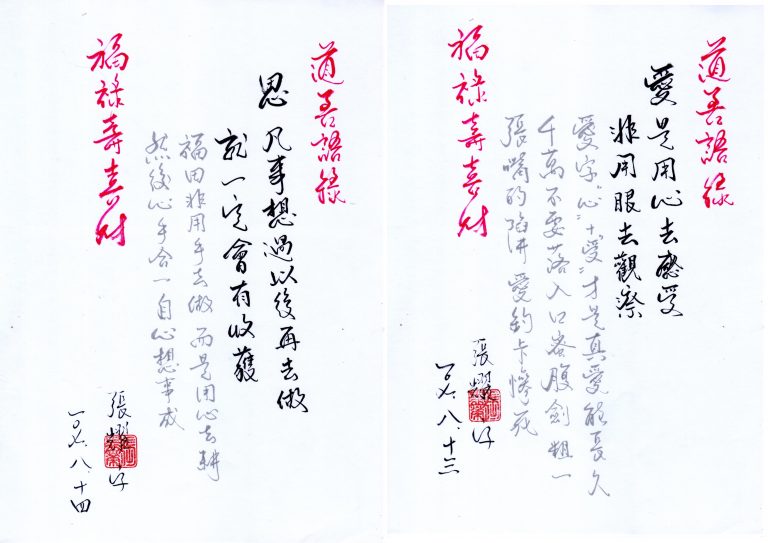 道善語錄
愛是用心去感受
非用眼去觀察
愛字"心"+"受"才是真愛能長久
千萬不要落入口蜜腹劍一
張嘴的陷阱愛卡慘死
張耀
一〇七.八.十三
福祿壽喜財
道善語錄
思凡事想過以後再去做
就一定會有收獲
福田非用手去做而是用心去耕
然後心手合一自心想事成
張耀
一〇七.八.十四
福祿壽喜財